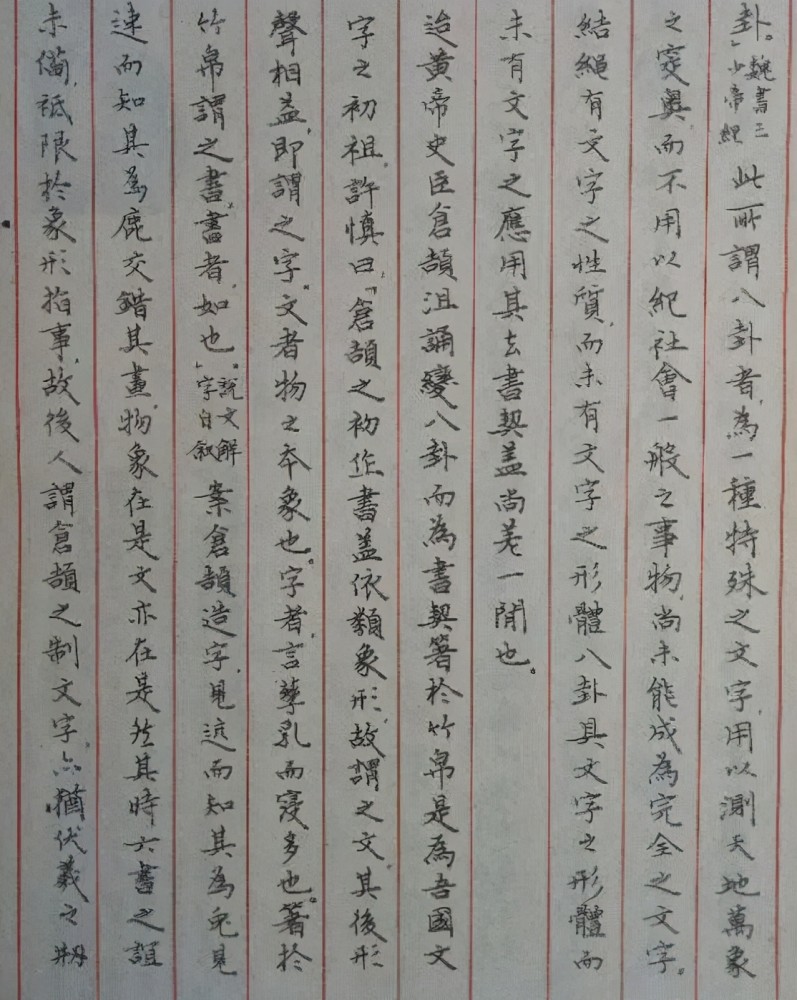 卦。」魏書三少帝紀 此所謂八卦者，為一種特殊之文字，用以測天地萬象
之窔奧，而不用以紀社會一般之事物，尚未能成為完全之文字。
結繩有文字之性質，而未有文字之形體，八卦具文字之形體而
未有文字之應用，其去書契蓋尚差一閒也。
迨黃帝史臣倉頡沮誦變八卦而為書契，箸於竹帛，是為吾國文
字之初祖，許慎曰：「倉頡之初作書，蓋依類象形，故謂之文，其後形
聲相益，即謂之字。文者物之本象也。字者，言孳乳而寖多也。箸於
竹帛謂之書，書者，如也。」說文解字自敘 案倉頡造字，見迒而知其為兔，見
速而知其為鹿，交錯其畫，物象在是，文亦在是，然其時六書之誼
未備，祗限於象形指事，故後人謂倉頡之制文字，亦猶伏羲之剏